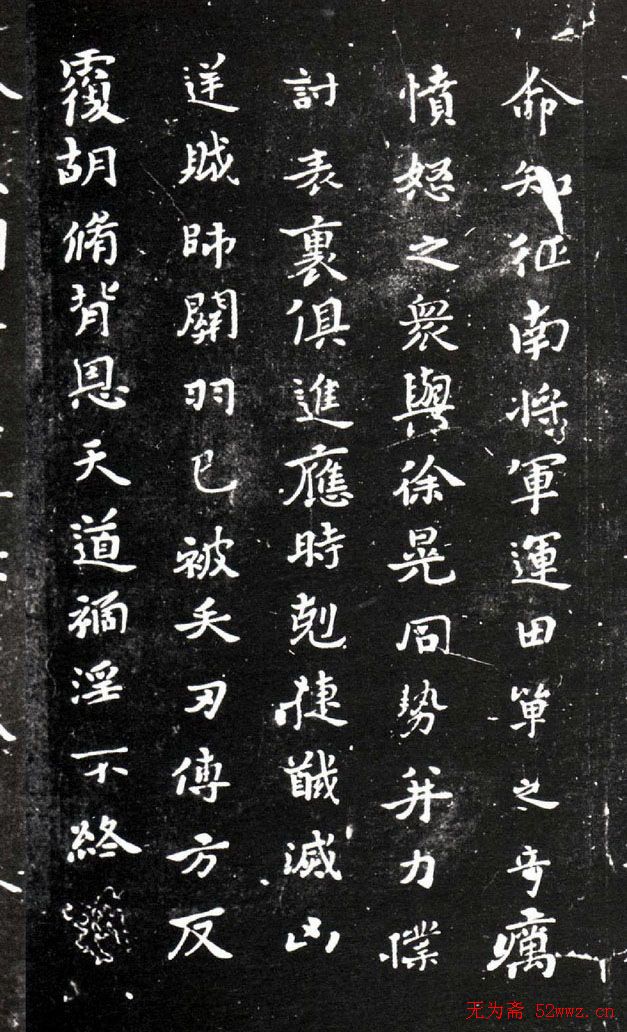 命知征南將軍運田單之奇厲
憤怒之衆與徐晃同勢并力撲
討表裏俱進應時剋捷馘滅凶
逆賊帥關羽已被矢刃傅方反
覆胡脩背恩天道禍淫不終
无为斋 52wwz.cn